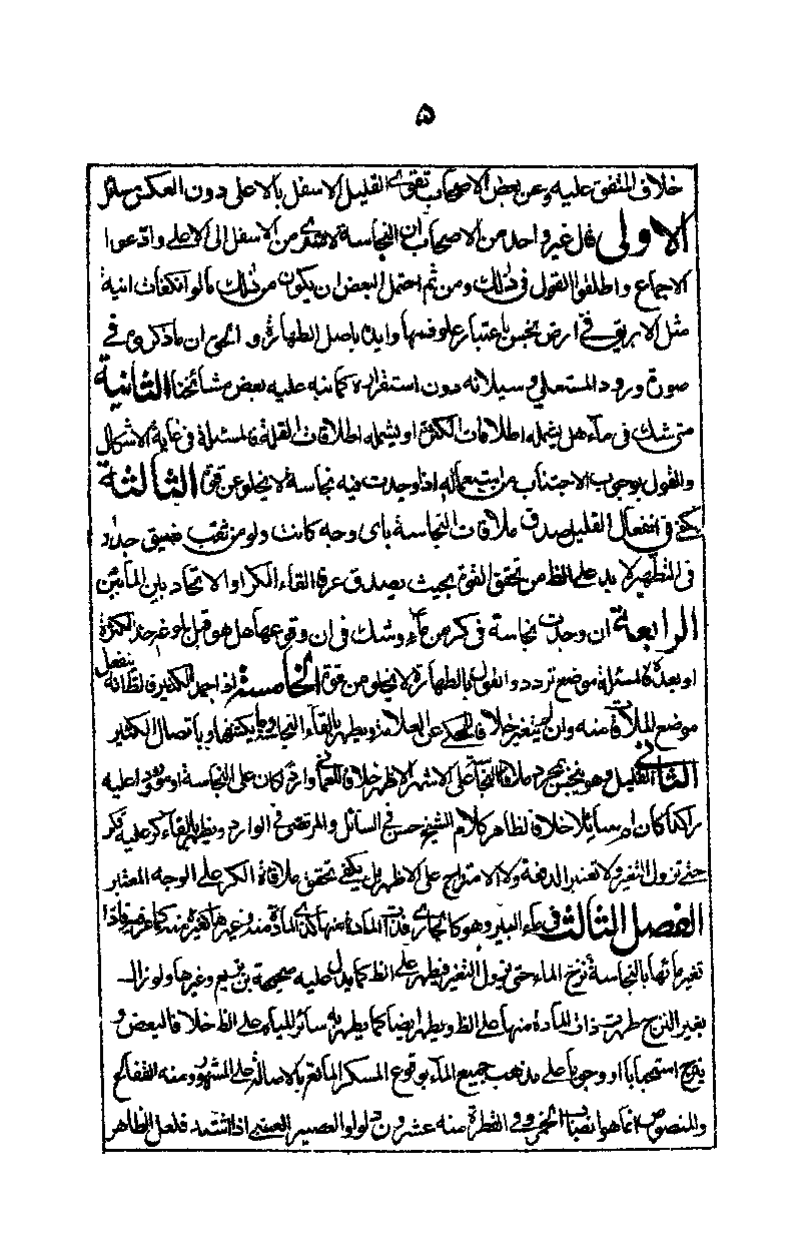 ۵
خلاف المتفق عليه وعن بعض الاصحاب تقوى القليل الاسفل بالاعلى دون العكس مسائل
الاولى قال غير واحد من الاصحاب ان النجاسة لا تسرى من الاسفل الى الاعلى وادعوا
الاجماع واطلقوا القول فى ذلك ومن ثم احتمل البعض ان يكون من ذلك مالو انكفات انية
مثل الابريق فى ارض نجس باعتبار علو فمها وايده باصل الطهارة و الحق ان ما ذكروه فى
صورة ورود المستعلى وسيلانه دون استقراره كما نبه عليه بعض مشائخنا الثانية
متى شك فى ماء هل يشمله اطلاقات الكثرة او يشمله اطلاقات القلة فالمسئلة فى غاية الاشكال
والقول بوجوب الاجتناب من استعماله اذا وجدت فيه نجاسة لا يخلو عن قوة الثالثة
يكفى فى انفعال القليل صدق ملاقات النجاسة باى وجه كانت ولو من ثقب ضيق جدا و
فى التطهير لا بد على الظ من تحقق القوة بحيث يصدق عرفا القاء الكر او الاتحاد بين المائين
الرابعة ان وجدت نجاسة فى كر من ماء وشك فى ان وقوعها هل هو قبل بلوغ حد الكثرة
او بعده فالمسئلة موضع تردد والقول بالطهارة لا يخلو من قوة الخامسة اذا جمد الكثير فالظ انه ينفعل
موضع الملاقاة منه وان لم يتغير خلافا للمحكى عن العلامة ويطهر بالقاء النجاسة وما يكتنفها وباتصال الكثير
الثانى القليل وهو ينجس بمجرد ملاقاة النجاسة على الاشهر الاظهر خلافا للعمانى واردا كان على النجاسة او مورودا عليه
راكدا كان او سائلا خلافا لظاهر كلام الشيخ حسن فى السائل والمرتضى فى الوارد ويطهر بالقاء كر عليه فكر
حتى تزول التغير ولا تعتبر الدفعة ولا الامتزاج على الاظهر بل يكفى تحقق ملاقاة الكر على الوجه المعتبر
الفصل الثالث فى ماء البئر وهو كالجارى ذات المادة منها كذى المادة منه وغيرها كغيره منه كما عرفته فاذا
تغير مائها بالنجاسة نزح الماء حتى يزول التغير فيطهر على الظ كما يدل عليه صحيحة بن بزيع وغيرها ولو زال
بغير النزح طهرت ذات المادة منها على الظ ويطهر ايضا كما يطهر به سائر المياه على الظ خلافا لبعض و
ينزح استحبابا او وجوبا على مذهب جميع الماء بوقوع المسكر المائع بالاصالة على المشهور ومنه الفقاع
والمنصوص انما هو انصباب الخمر وفى القطرة منه عشرون دلوا والعصير العنبى اذا اشتد فلعل الظاهر